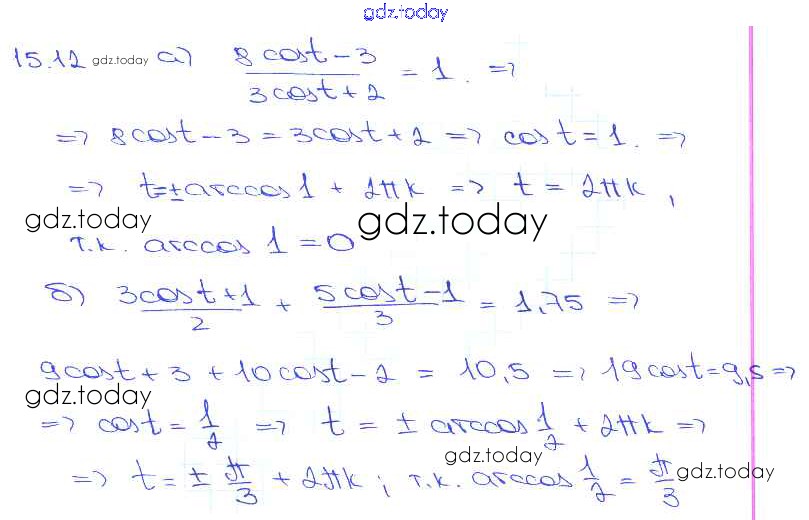 gdz.today
15.12 gdz.today а) (8cost-3)/(3cost+2) = 1. =>
=> 8cost-3 = 3cost+2 => cos t = 1. =>
=> t=±arccos1 + 2πk => t = 2πk,
gdz.today gdz.today
т.к. arccos 1 = 0
б) (3cost+1)/2 + (5cost-1)/3 = 1,75 =>
9cost + 3 + 10cost - 2 = 10,5 => 19cost=9,5 =>
gdz.today
=> cost = 1/2 => t = ± arccos 1/2 + 2πk =>
gdz.today gdz.today
=> t = ± π/3 + 2πk; т.к. arccos 1/2 = π/3